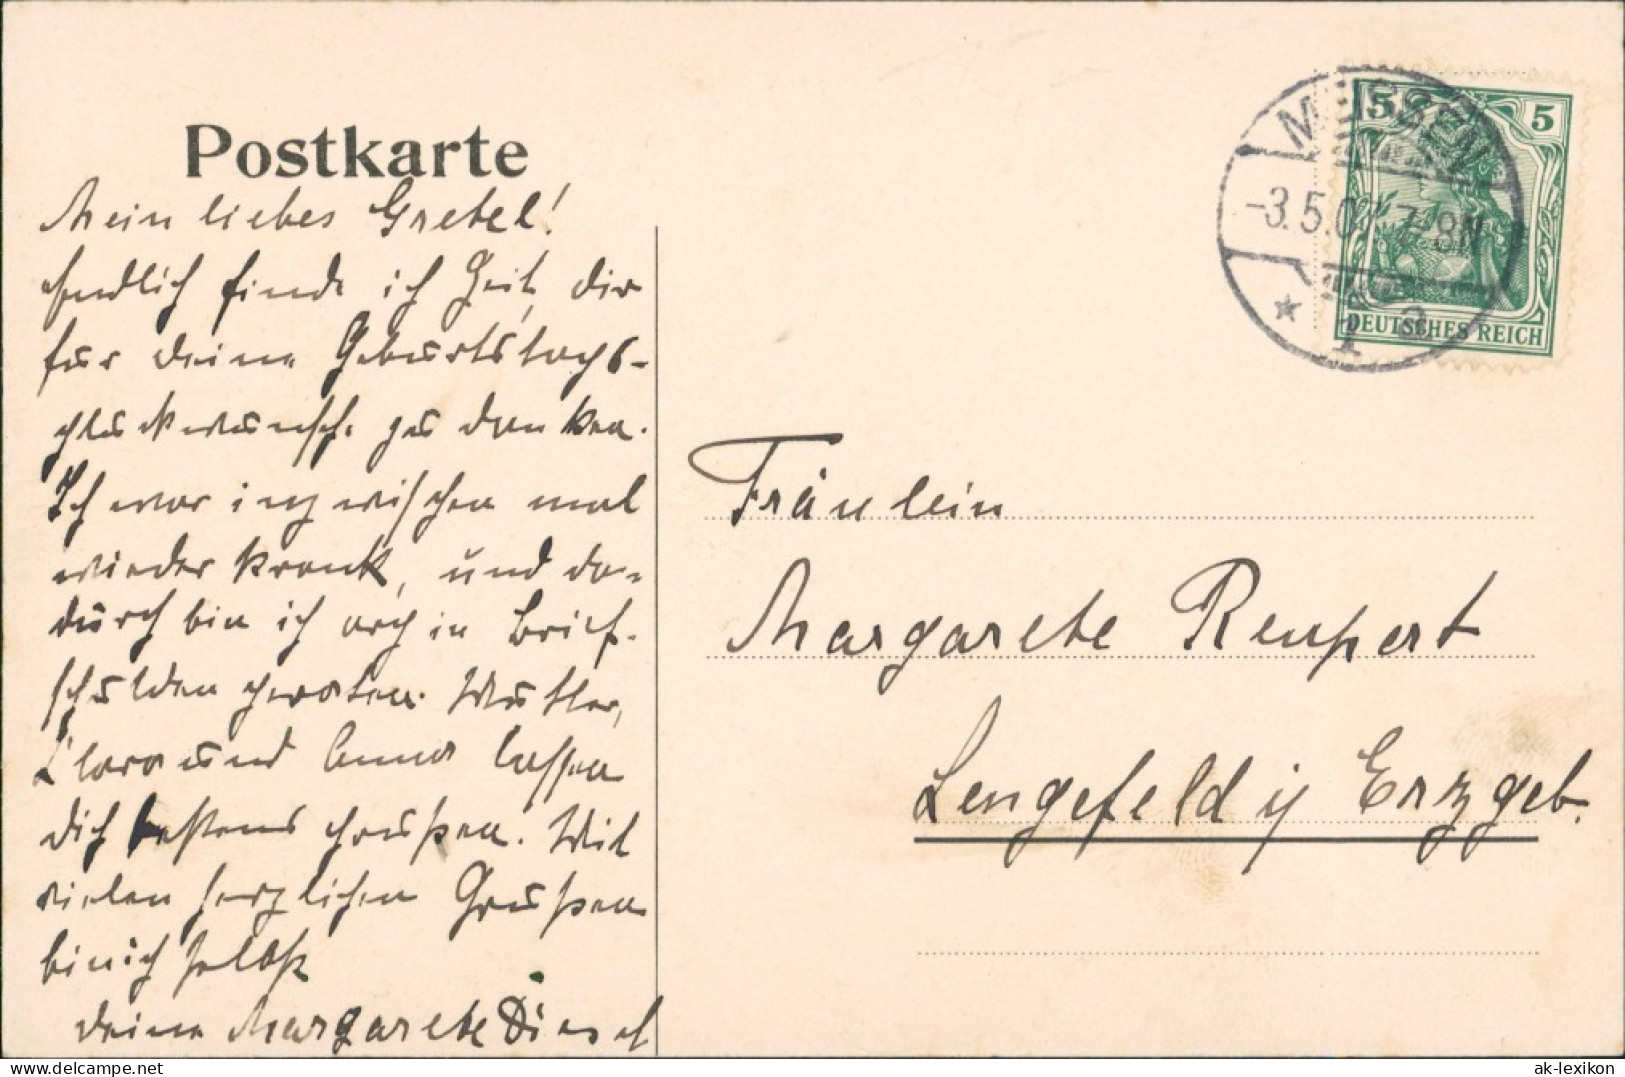 Postkarte
Mein liebes Gretel!
Endlich finde ich Zeit, dir
für deine Geburtstags-
glückwünsche zu danken.
Ich war inzwischen mal
wieder krank, und da-
durch bin ich arg in Brief-
schulden geraten. Mutter,
Clara und Anna lassen
dich bestens grüßen. Mit
vielen herzlichen Grüßen
bin ich selbst
deine Margarete
MEISSEN
-3.5.07. 7-8N
* 1 a
5 5
DEUTSCHES REICH
Fräulein
Margarete Reupert
Lengefeld i/ Erzgeb.
www.delcampe.net
ak-lexikon